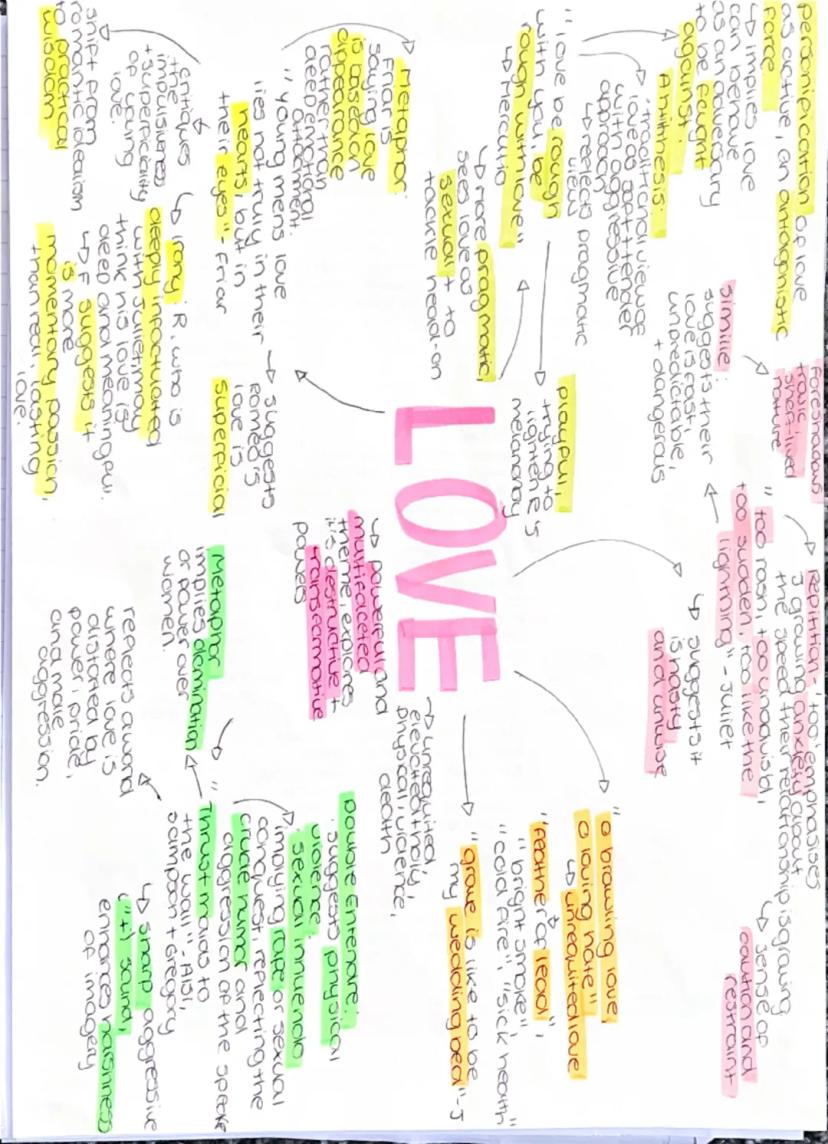 LOVE
↳ powerful and
multifaceted
theme, explores
it's destructive +
transformative
powers
→ unrequited,
elevated + holy,
physical, violence,
death
personification of love
as active, an antagonistic
force
↳ implies love
can behave
as an adversary
to be fought
against.
Antithesis:
"traditional view of
love as soft + tender
with aggressive
approach
↳ reflects pragmatic
view
"love be rough
with you, be
rough with love"
↳ Mercutio
↳ more pragmatic,
sees love as
sexual + to
tackle head-on
playful,
trying to
lighten R's
melancholy
foreshadows
toxic,
short-lived
nature
simile:
suggests their
love is fast,
unpredictable,
+ dangerous
Repitition- 'too' emphasises
J growing anxiety about
the speed their relationship is growing
↳ sense of
caution and
restraint
"too rash, too unadvis'd,
too sudden, too like the
lightning" - Juliet
↳ suggests it
is hasty
and unwise
"o brawling love
o loving hate"
↳ unrequited love
"feather of lead",
"bright smoke",
"cold fire", "sick health"
"grave is like to be
my wedding bed" - J
Metaphor:
Friar is
saying love
is based on
appearance
rather than
deep emotional
attachment.
"young mens love
lies not truly in their
hearts, but in
their eyes" - Friar
→ suggests
romeo's
love is
superficial
critiques
the
impulsiveness
+ superficiality
of young
love.
shift from
romantic idealism
to practical
wisdom
↳ Irony: R, who is
deeply infactuated
with Juliet, may
think his love is
deep and meaningful.
↳ F suggests it
is more
momentary passion,
than real, lasting
love.
Double Entendre:
suggests physical
violence.
sexual innuendo
implying rape or sexual
conquest, reflecting the
crude humor and
aggression of the speake
"
Thrust maids to
the wall" - A1S1,
Sampson + Gregory
↳ sharp aggressive
("t") sound,
enhances harshness
of imagery
Metaphor
implies domination
or power over
women.
reflects a world
where love is
distorted by
power, pride,
and male
aggression.